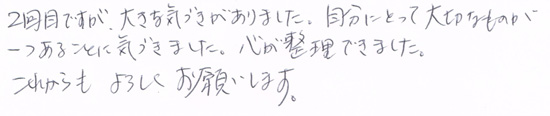 2回目ですが、大きな気づきがありました。自分にとって大切なものが
一つあることに気づきました。心が整理できました。
これからも よろしく お願いします。